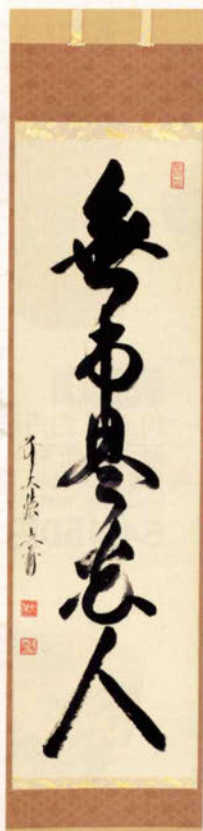 無事是貴人
前大徳